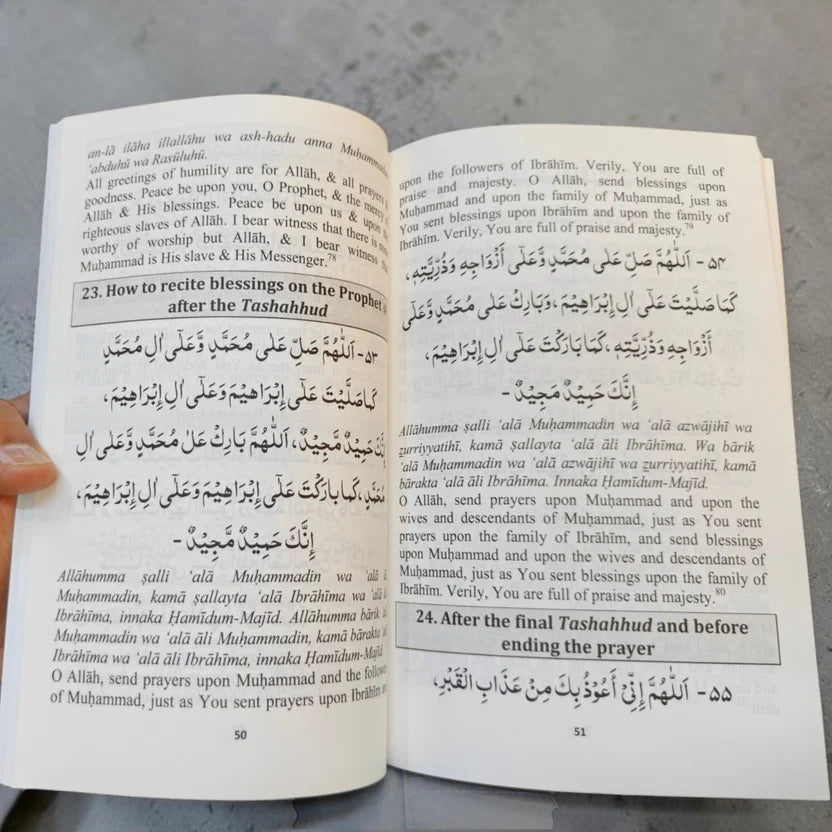 an-lā ilāha illallāhu wa ash-hadu anna Muḥammadan
‘abduhū wa Rasūluhū.
All greetings of humility are for Allāh, & all prayers &
goodness. Peace be upon you, O Prophet, & the mercy of
Allāh & His blessings. Peace be upon us & upon the
righteous slaves of Allāh. I bear witness that there is none
worthy of worship but Allāh, & I bear witness that
Muḥammad is His slave & His Messenger.78
23. How to recite blessings on the Prophet
after the Tashahhud
۵۳- اَللّٰهُمَّ صَلِّ عَلٰى مُحَمَّدٍ وَّعَلٰٓى اٰلِ مُحَمَّدٍ
كَمَا صَلَّيْتَ عَلٰٓى إِبْرَاهِيْمَ وَعَلٰٓى اٰلِ إِبْرَاهِيْمَ،
إِنَّكَ حَمِيْدٌ مَّجِيْدٌ، اَللّٰهُمَّ بَارِكْ عَلٰ مُحَمَّدٍ وَّعَلٰٓى اٰلِ
مُحَمَّدٍ، كَمَا بَارَكْتَ عَلٰٓى إِبْرَاهِيْمَ وَعَلٰٓى اٰلِ إِبْرَاهِيْمَ،
إِنَّكَ حَمِيْدٌ مَّجِيْدٌ -
Allāhumma ṣalli ‘alā Muḥammadin wa ‘alā
Muḥammadin, kamā ṣallayta ‘alā Ibrāhīma wa ‘alā
Ibrāhīma, innaka Ḥamīdum-Majīd. Allāhumma bārik
Muḥammadin wa ‘alā āli Muḥammadin, kamā bārakta
Ibrāhīma wa ‘alā āli Ibrāhīma, innaka Ḥamīdum-Majīd
O Allāh, send prayers upon Muḥammad and the followers
of Muḥammad, just as You sent prayers upon Ibrāhīm and
50
upon the followers of Ibrāhīm. Verily, You are full of
praise and majesty. O Allāh, send blessings upon
Muḥammad and upon the family of Muḥammad, just as
You sent blessings upon Ibrāhīm and upon the family of
Ibrāhīm. Verily, You are full of praise and majesty.79
۵۴- اَللّٰهُمَّ صَلِّ عَلٰى مُحَمَّدٍ وَّعَلٰٓى أَزْوَاجِهٖ وَذُرِّيَّتِهٖ،
كَمَا صَلَّيْتَ عَلٰٓى اٰلِ إِبْرَاهِيْمَ، وَبَارِكْ عَلٰى مُحَمَّدٍ وَّعَلٰٓى
أَزْوَاجِهٖ وَذُرِّيَّتِهٖ، كَمَا بَارَكْتَ عَلٰٓى اٰلِ إِبْرَاهِيْمَ،
إِنَّكَ حَمِيْدٌ مَّجِيْدٌ -
Allāhumma ṣalli ‘alā Muḥammadin wa ‘alā azwājihī wa
z̲urriyyatihī, kamā ṣallayta ‘alā āli Ibrāhīma. Wa bārik
‘alā Muḥammadin wa ‘alā azwājihī wa z̲urriyyatihī, kamā
bārakta ‘alā āli Ibrāhīma. Innaka Ḥamīdum-Majīd.
O Allāh, send prayers upon Muḥammad and upon the
wives and descendants of Muḥammad, just as You sent
prayers upon the family of Ibrāhīm, and send blessings
upon Muḥammad and upon the wives and descendants of
Muḥammad, just as You sent blessings upon the family of
Ibrāhīm. Verily, You are full of praise and majesty.80
24. After the final Tashahhud and before
ending the prayer
۵۵- اَللّٰهُمَّ إِنِّيْٓ أَعُوْذُ بِكَ مِنْ عَذَابِ الْقَبْرِ،
51